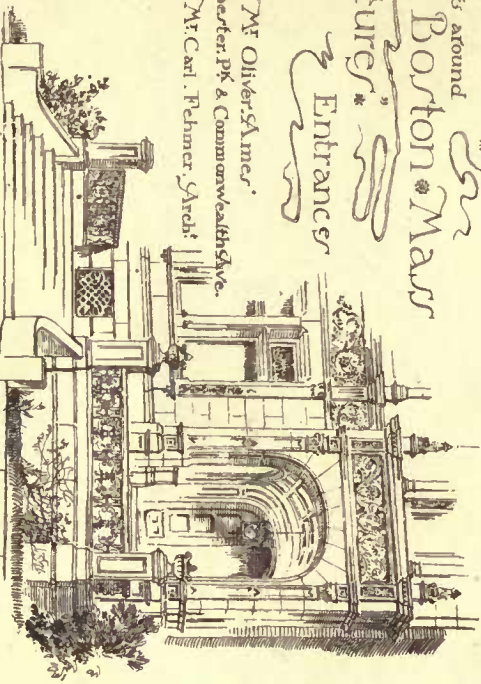 around
Boston * Mass
ures" *
Entrances
Mr Oliver Ames'
ester. Pk & Commonwealth Ave.
Mr. Carl. Fehmer, Archt